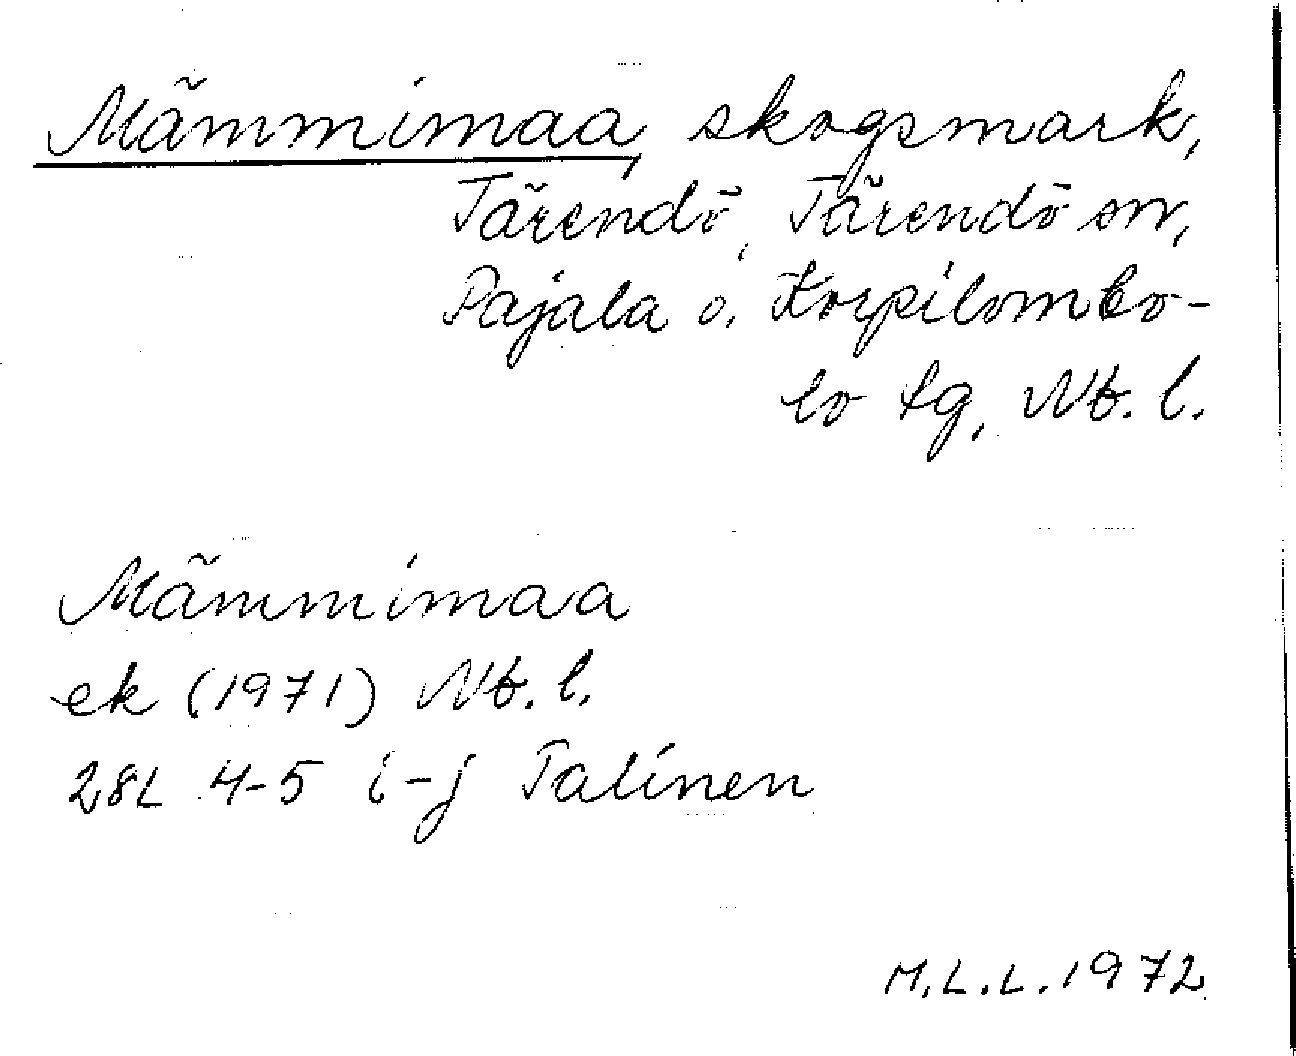 Mämmimaa, skogsmark,
Tärendö, Tärendö sn,
Pajala o. Korpilombo-
lo tg, Nb. l.
Mämmimaa
ek (1971) Nb. l.
28L 4-5 i-j Talinen
M.L.L. 1972